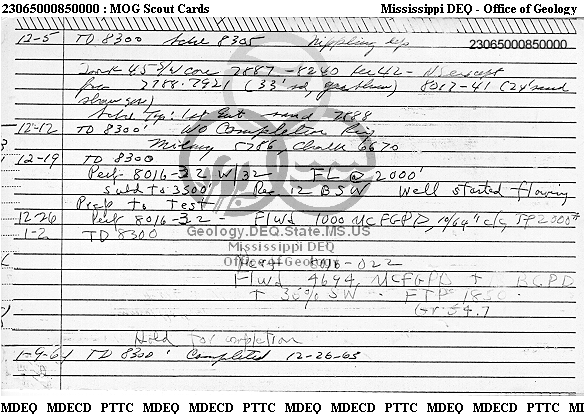 23065000850000 : MOG Scout Cards Mississippi DEQ - Office of Geology
12-5 TD 8300 Schl 8305 Nippling up 23065000850000
Took 45 S/W core 7887 - 8240 Rec 42 - NS except
from 7788-792 (33' sd, gas show) 8017-41 (24' sand
show gas)
Schl Top: 1st Eut sand 7888
12-12 TD 8300' WO Completion Rig
Midway 5786 Chalk 6670
12-19 TD 8300
Perf 8016-22 W/32 FL @ 2000'
Swbd to 3500' Rec 12 BSW Well started flowing
Prep to Test
12-26 Perf 8016-22 - Flwd 1000 MCFGPD, 10/64" c/c, SP 2000#
1-2 TD 8300
Geology.DEQ.State.MS.US
Mississippi DEQ
Office of Geology
Perf 8016-022
Flwd 4694 MCFGPD + BCPD
+ 30% SW - FTP 1850
Gr 54.7
Hold for completion
1-9-61 TD 8300' Completed 12-26-65
MDEQ MDECD PTTC MDEQ MDECD PTTC MDEQ MDECD PTTC MDEQ MDECD PTTC MI